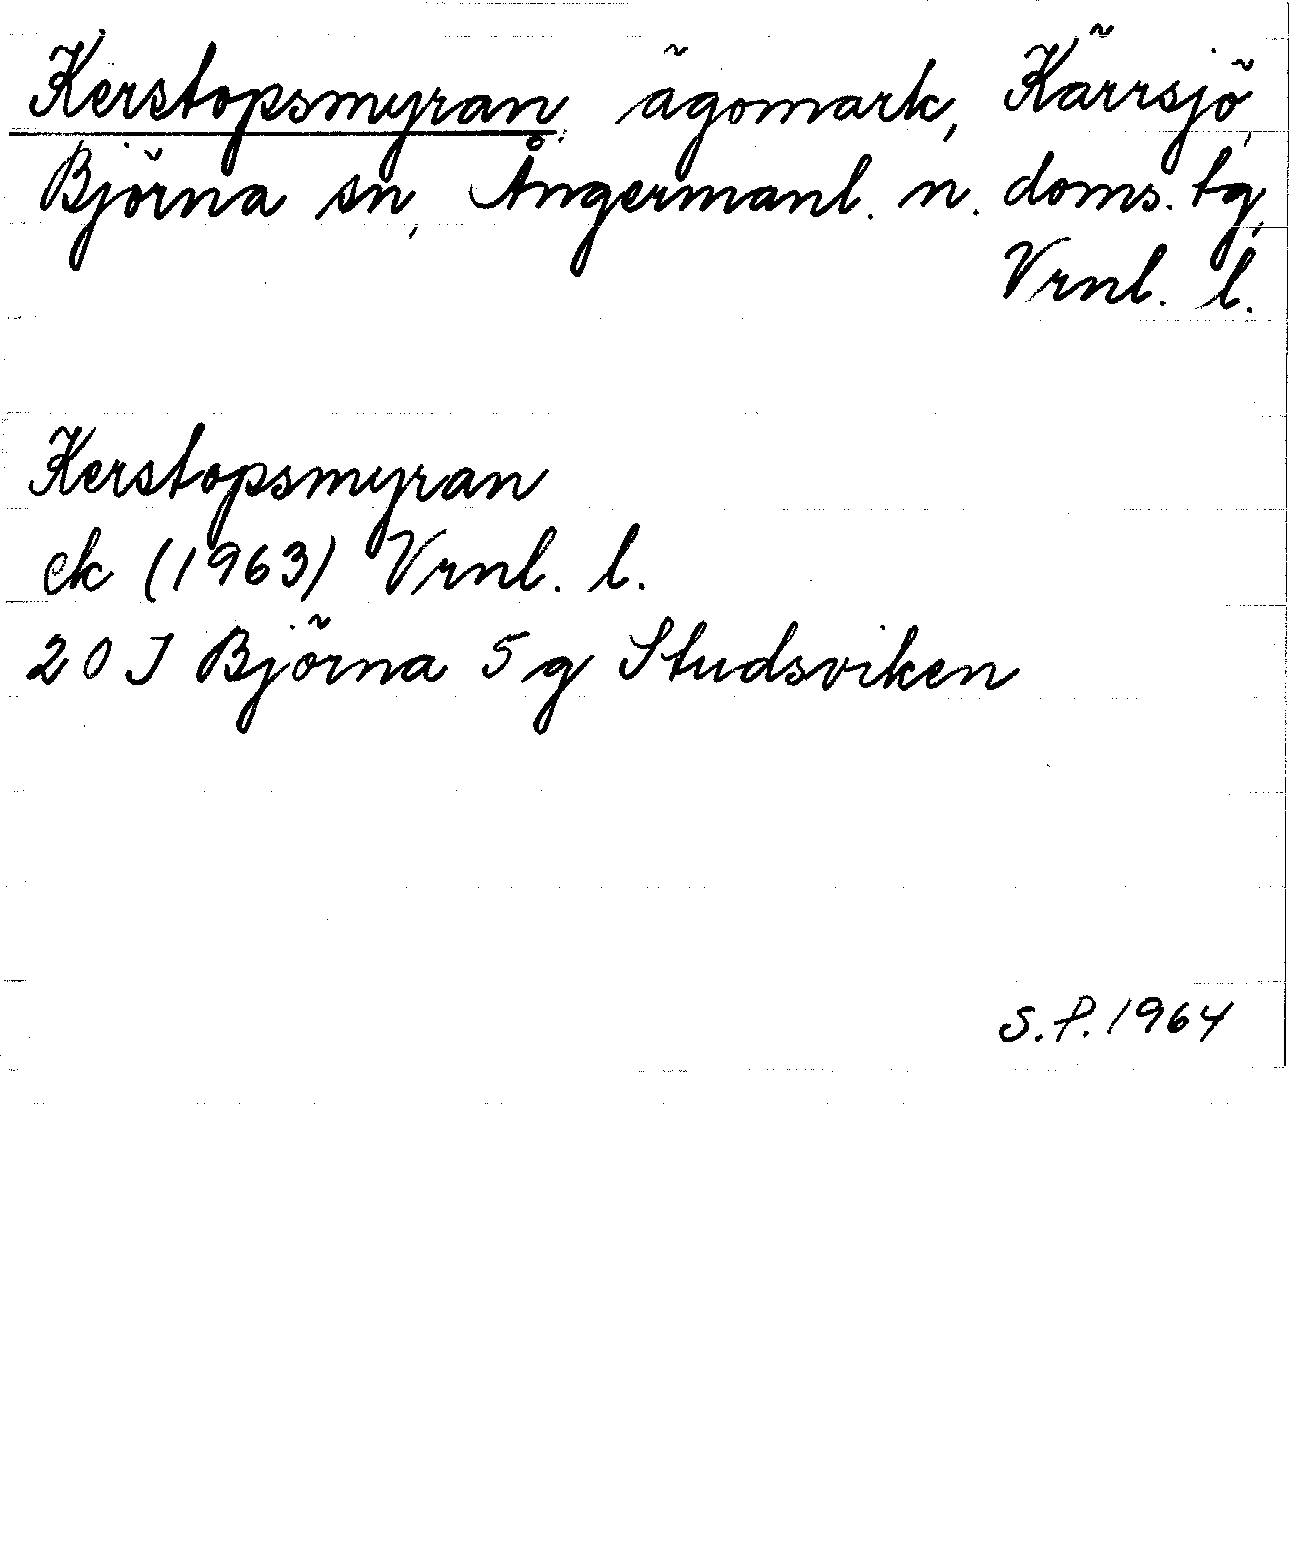 Kerstopsmyran, ägomark, Kärrsjö,
Björna sn, Ångermanl. n. doms. tg,
Vrnl. l.
Kerstopsmyran
ek (1963) Vrnl. l.
20 J Björna 5 g Studsviken
S.P. 1964